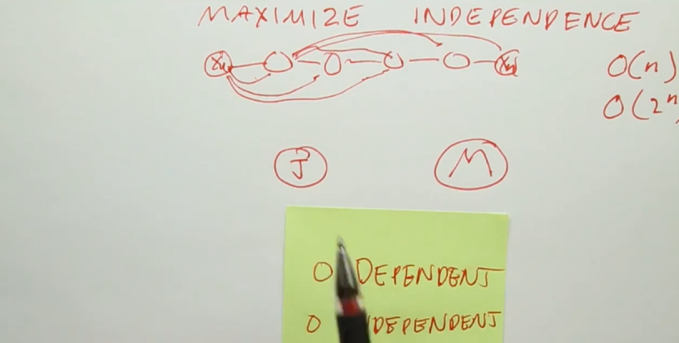 MAXIMIZE INDEPENDENCE
X₁ Xₙ O(n)
O(2ⁿ
J M
O DEPENDENT
O INDEPENDENT